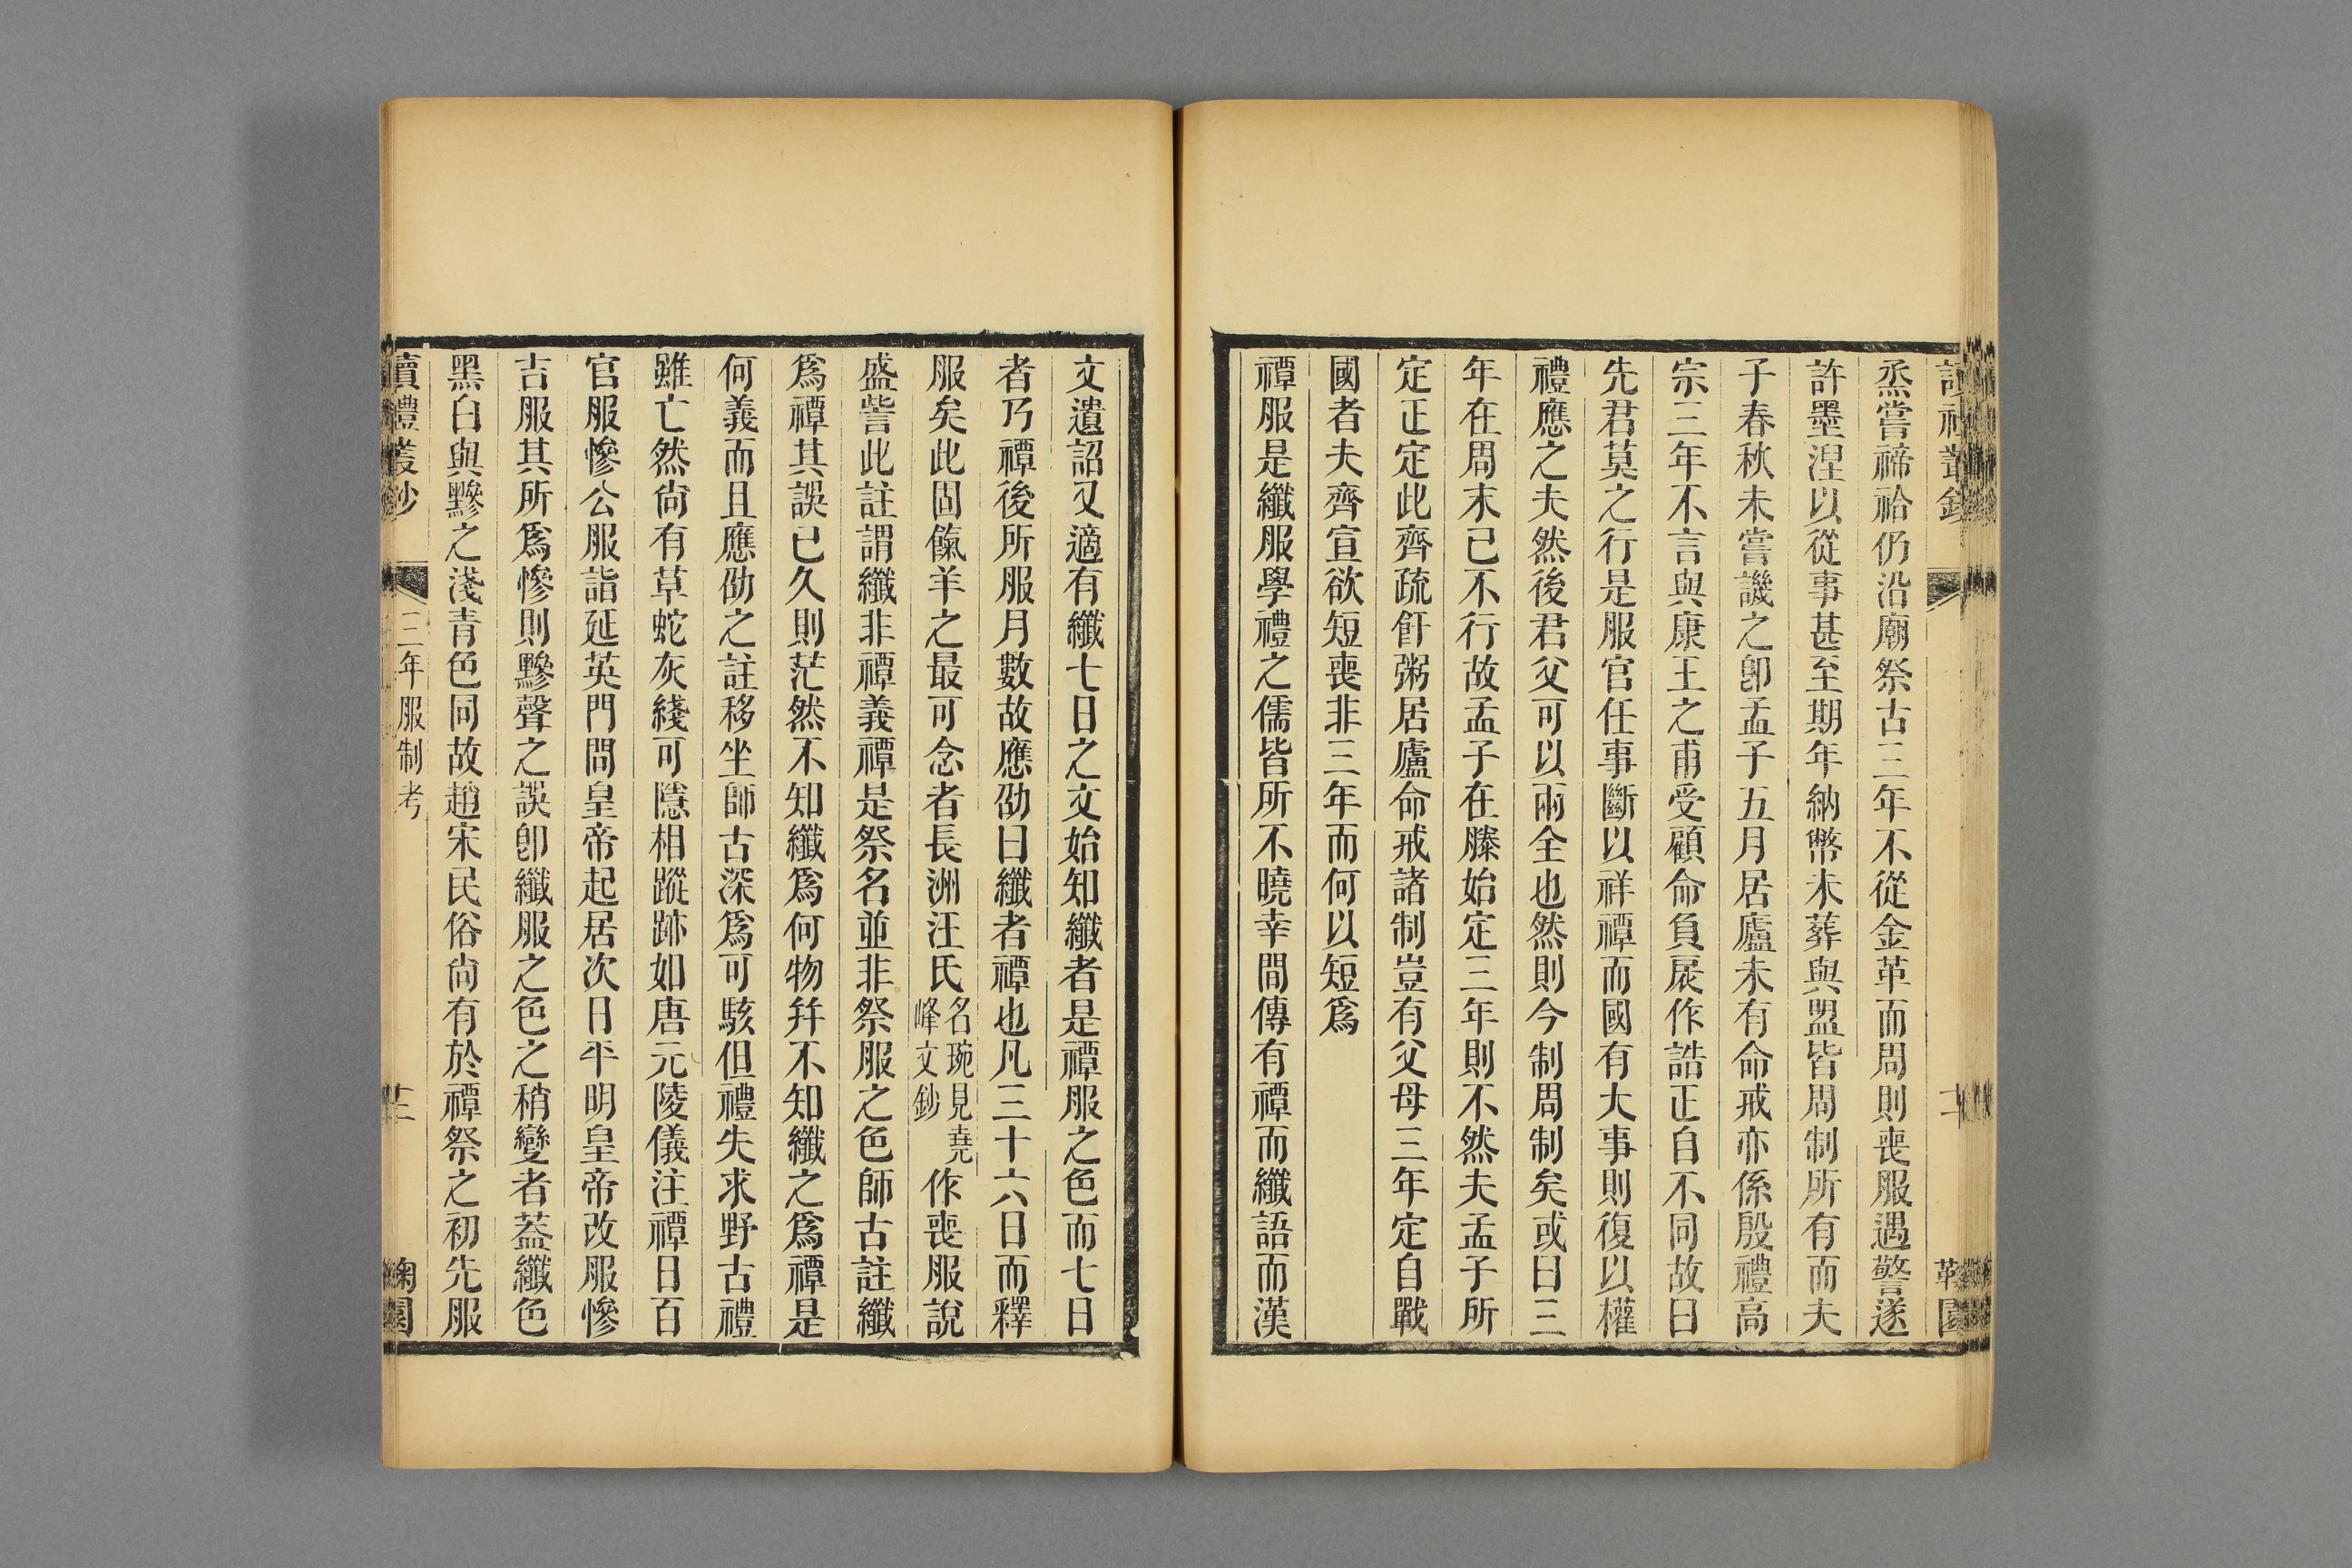 烝嘗禘祫仍沿廟祭古三年不從金革而周則喪服遇警遂
許墨涅以從事甚至期年納幣未葬與盟皆周制所有而夫
子春秋未嘗譏之卽孟子五月居廬未有命戒亦係殷禮高
宗三年不言與康王之甫受顧命負扆作誥正自不同故曰
先君莫之行是服官任事斷以祥禫而國有大事則復以權
禮應之夫然後君父可以兩全也然則今制周制矣或曰三
年在周末已不行故孟子在滕始定三年則不然夫孟子所
定正定此齊疏飦粥居廬命戒諸制豈有父母三年定自戰
國者夫齊宣欲短喪非三年而何以短為
禫服是纖服學禮之儒皆所不曉幸間傳有禫而纖語而漢
文遺詔又適有纖七日之文始知纖者是禫服之色而七日
者乃禫後所服月數故應劭曰纖者禫也凡三十六日而釋
服矣此固餼羊之最可念者長洲汪氏名琬見堯峰文鈔作喪服說
盛訾此註謂纖非禫義禫是祭名並非祭服之色師古註纖
爲禫其誤已久則茫然不知纖爲何物幷不知纖之爲禫是
何義而且應劭之註移坐師古深爲可駭但禮失求野古禮
雖亡然尙有草蛇灰綫可隱相蹤跡如唐元陵儀注禫日百
官服慘公服詣延英門問皇帝起居次日平明皇帝改服慘
吉服其所爲慘則黲聲之誤卽纖服之色之稍變者蓋纖色
黑白與黲之淺青色同故趙宋民俗尙有於禫祭之初先服
讀禮叢鈔 三年服制考 鞠園